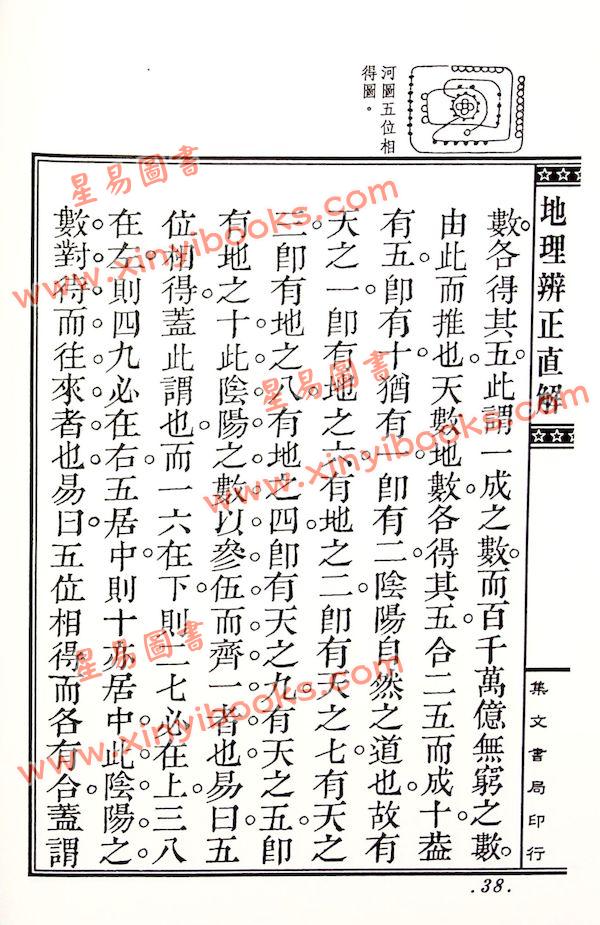 河圖五位相
得圖。
地理辨正直解
集文書局印行
數。各得其五。此謂一成之數。而百千萬億無窮之數。
由此而推也。天數地數各得其五。合二五而成十。葢
有五。卽有十。猶有一卽有二。陰陽自然之道也。故有
天之一。卽有地之六。有地之二。卽有天之七。有天之
三。卽有地之八。有地之四。卽有天之九。有天之五。卽
有地之十。此陰陽之數。以參伍而齊一者也。易曰五
位相得。蓋此謂也。而一六在下。則二七必在上。三八
在左。則四九必在右。五居中。則十亦居中。此陰陽之
數。對待而往來者也。易曰五位相得而各有合。蓋謂
.38.
星易圖書
www.xinyibooks.com
星易圖書
www.xinyibooks.com
星易圖書
www.xinyibooks.com